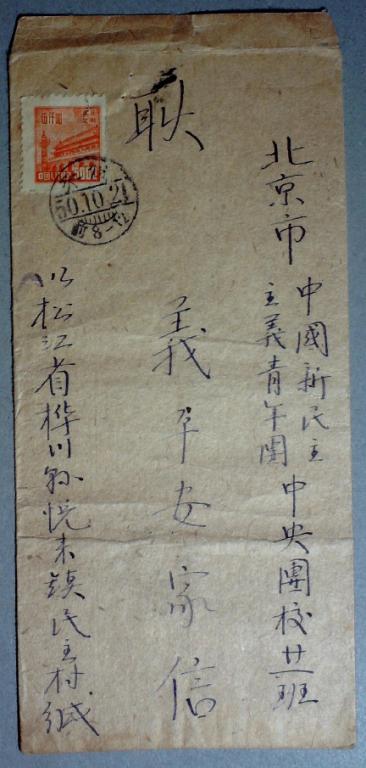 北京市
中國新民主
主義青年團
中央團校廿一班
耿
義平安家信
松江省樺川縣悦来鎮民主村緘
伍仟圓
5000
50.10.21